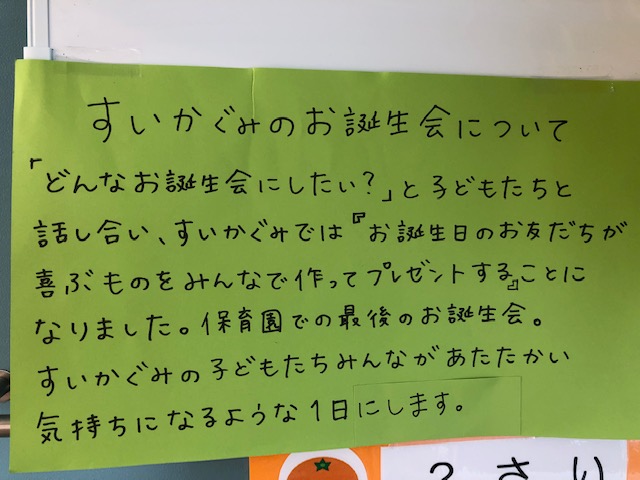 すいかぐみのお誕生会について
「どんなお誕生会にしたい?」と子どもたちと
話し合い、すいかぐみでは『お誕生日のお友だちが
喜ぶものをみんなで作ってプレゼントする』ことに
なりました。保育園での最後のお誕生会。
すいかぐみの子どもたちみんながあたたかい
気持ちになるような1日にします。
?さい